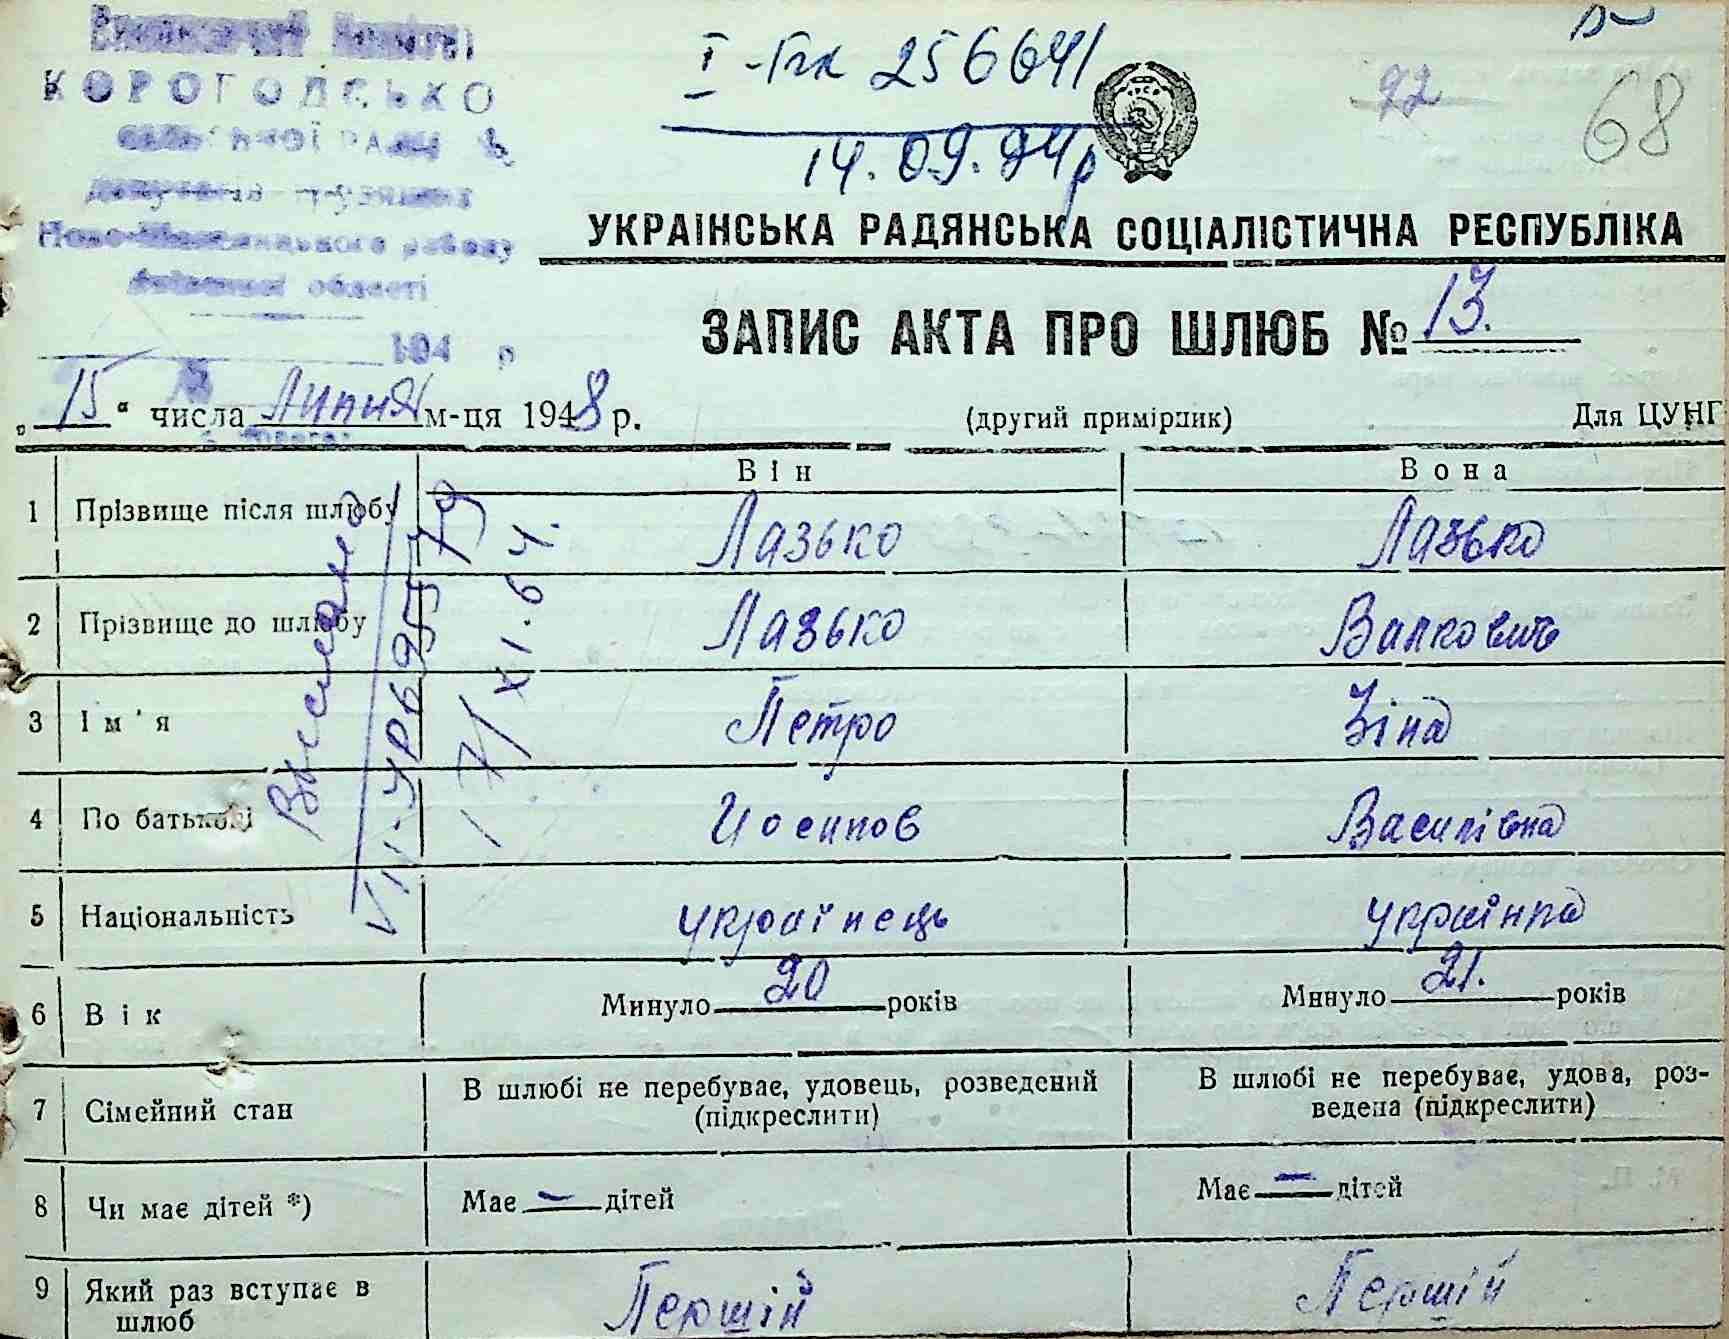 КОРОГОДСЬКО
області
І-Гк 256641
14.09.94р
22
68
УКРАЇНСЬКА РАДЯНСЬКА СОЦІАЛІСТИЧНА РЕСПУБЛІКА
ЗАПИС АКТА ПРО ШЛЮБ № 13.
194 р
„15“ числа Липня м-ця 1948 р. (другий примірник) Для ЦУНГ
Він Вона
1 Прізвище після шлюбу Лазько Лазько
2 Прізвище до шлюбу Лазько Валкович
3 Ім'я Петро Зіна
4 По батькові Иосипов Василівна
5 Національність українець українка
6 Вік Минуло 20 років Минуло 21. років
7 Сімейний стан В шлюбі не перебуває, удовець, розведений (підкреслити) В шлюбі не перебуває, удова, роз-
ведена (підкреслити)
8 Чи має дітей *) Має — дітей Має — дітей
9 Який раз вступає в шлюб Першій Першій
17/XI.64.